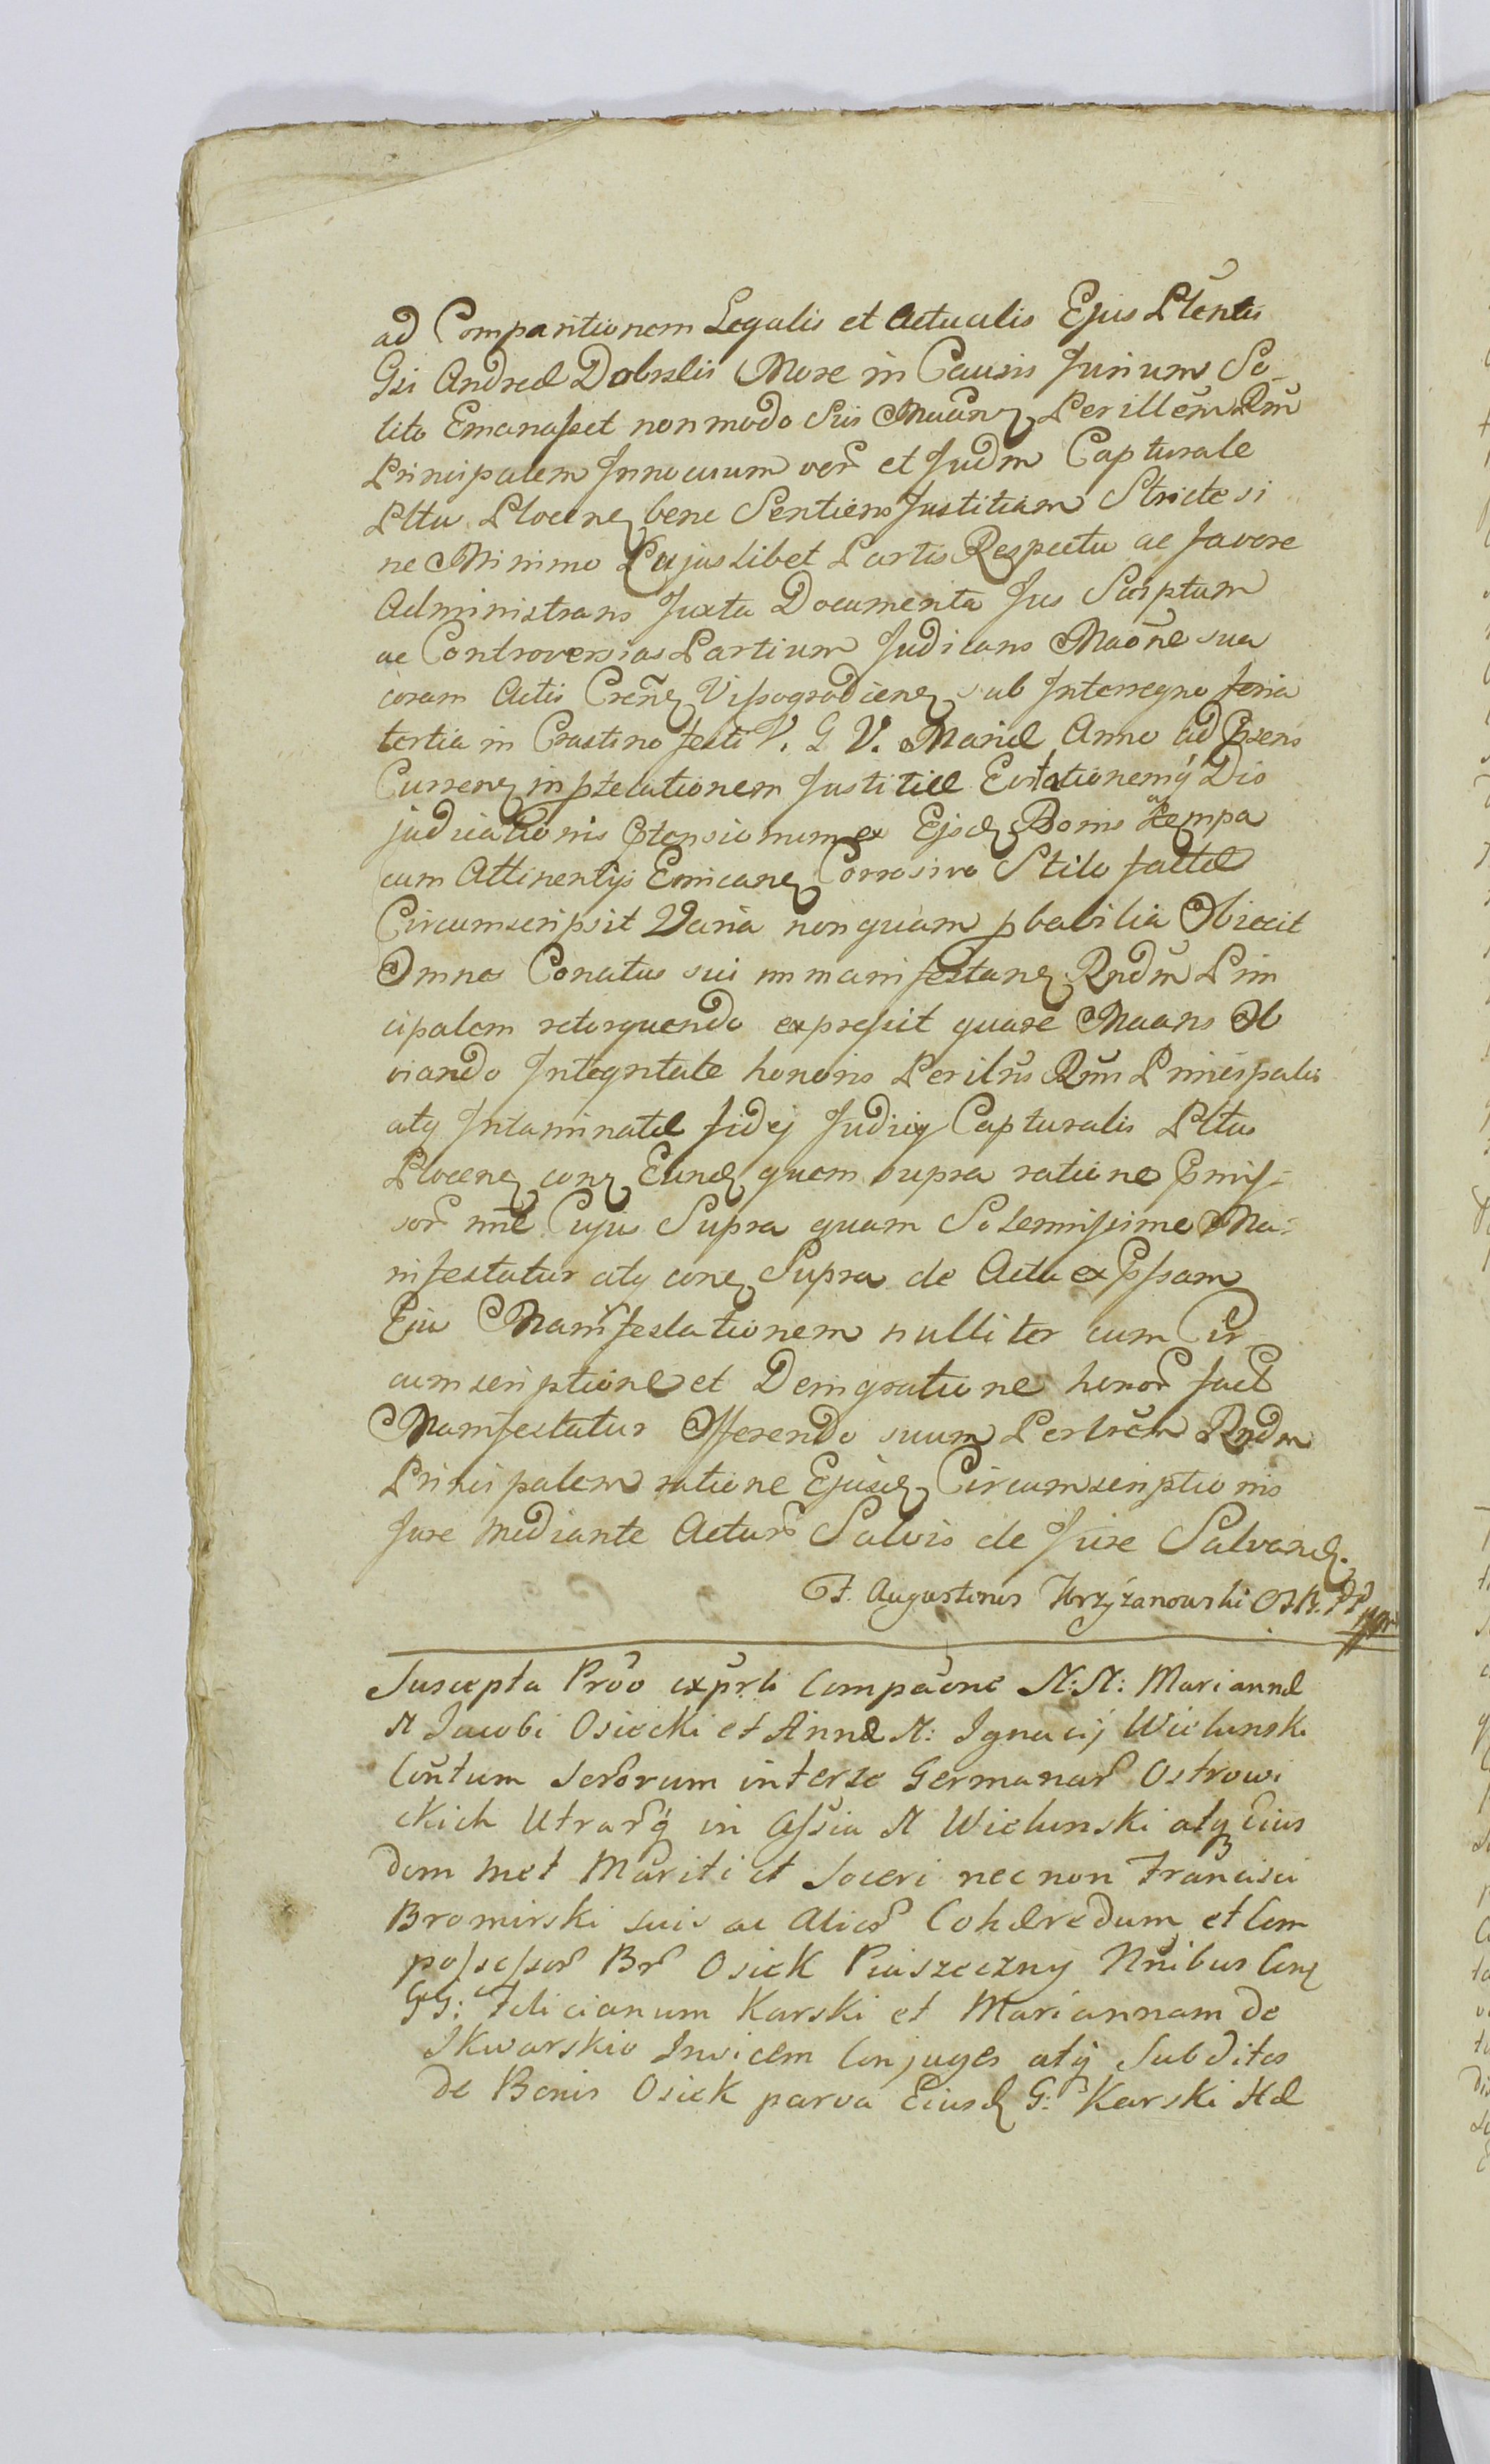 ad Comparitionem Legalis et Actualis Ejus Pleñtis
Gsi Andreæ Dobrslis More in Causis Jurium So-
lito Emanasset non modo Sui Maãnꝫ Perillẽm Rm̃
Principalem Innocuum ver̃ et Judm Capturale
Pltu Plocenꝫ bene Sentiens Justitiam Stricte si
ne Minimo Cujuslibet Partis Respectu ac favore
Administrans Juxta Documenta Jus Scriptum
ac Controversias Partium Judicans Maõne sua
coram Actis Creñꝫ Vissogrodienꝫ sub Interregno feria
tertia in Crastino festi V. G V. Mariæ Anno ad Prsens
Currenꝫ in
judicationis ex Ejsdꝫ Bonis Kempa
cum Attinentijs Emicanꝫ Corrosivo Stilo factæ
Circumscripsit Varia nonquam pbabilia Obiecit
Omnes Conatus sui manifestanꝫ Rndm̃ Prin
cipalem retorquendo expressit quare Maans Ob
viando Integritate honoris Perilris Rm̃i Principalis
atq Intaminatæ fidej Judicij Capturalis Pltus
Plocenꝫ conꝫ Eundꝫ quem supra ratione Pmis-
sor̃ nne Cujus Supra quam Solennissime Ma-
nifestatur atq conꝫ Supra de Actu expssam
Eju Manifestationem nulliter cum Cir
cumscriptione et Denigratione honor̃ factæ
Manifestatur Offerendo suum Perlrẽm Rndm
Principalem ratione Ejusdꝫ Circumscriptionis
Jure mediante Actur̃ Salvis de Jure Salvandꝫ.
F. Augustinus Krzyżanowski OSB. PP mpr
Suscepta Prõo exprli Compãone N: N: Mariannæ
N Jacobi Osiecki et Annæ N: Ignacij Wielunski
Coñtum Serorum inter se Germanar̃ Ostrowi
ckich Utrar̃q in Assia N Wielunski atq Eius
dem met Mariti et Soceri nec non Francisci
Bromirski suis ac Alior̃ Cohæredum et Com
possessor̃ Br̃ Osiek Piaszeczny Nnibus Conꝫ
GG: Felicianum Karski et Mariannam de
Skwarskie Invicem Conjuges atq Subditos
de Bonis Osiek parva Eiusdꝫ G: Karski Hæ